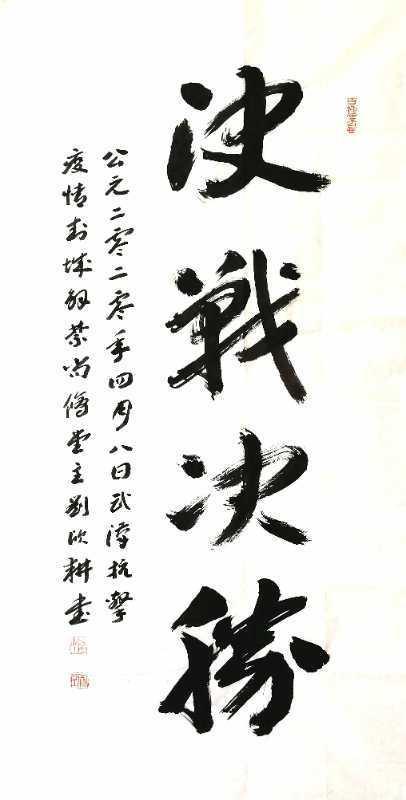 决戰决勝
公元二零二零年四月八日武漢抗擊
疫情封城解禁尚修堂主劉欣耕書